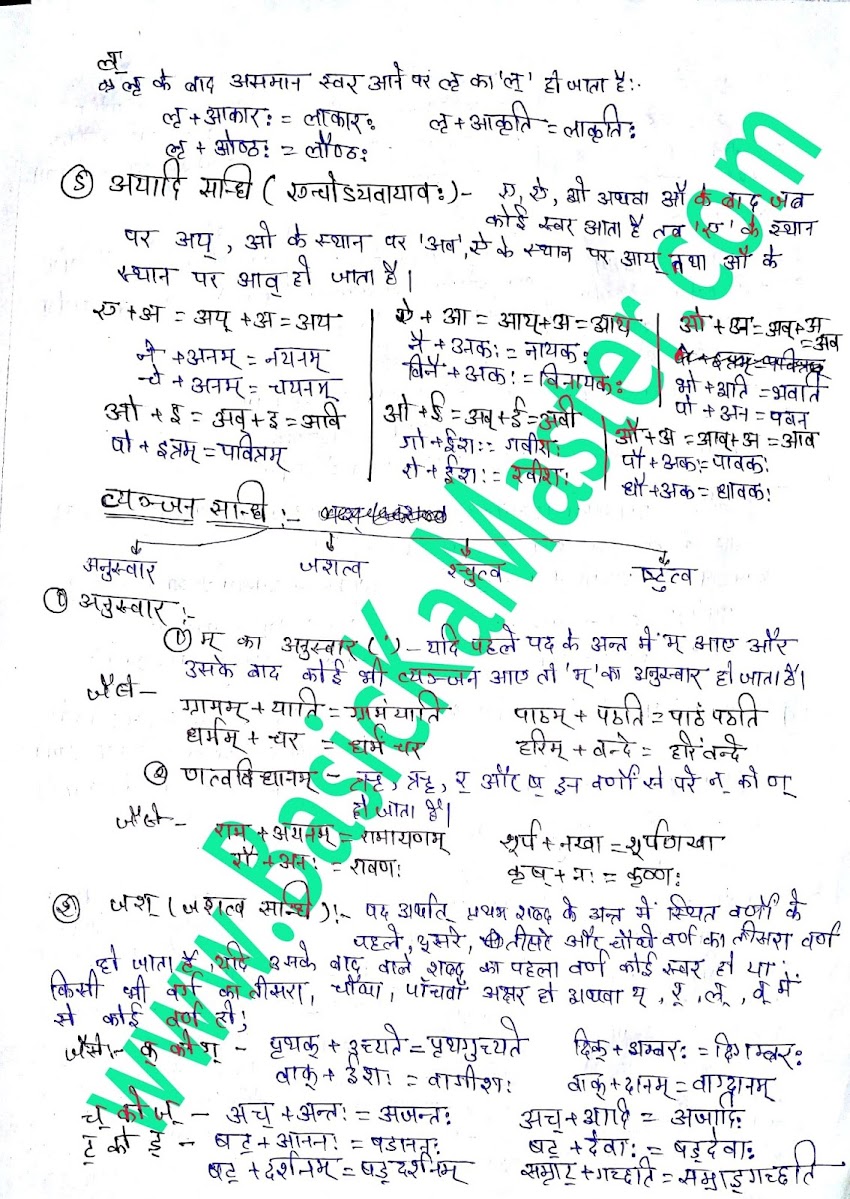 लृ
लृ के बाद असमान स्वर आने पर लृ का 'ल्' हो जाता है:-
लृ + आकारः = लाकारः   लृ + आकृति = लाकृतिः
लृ + ओष्ठः = लौष्ठः
⑤ अयादि सन्धि ( एचोऽयवायावः ) - ए, ऐ, ओ अथवा औ के बाद जब
कोई स्वर आता है तब 'ए' के स्थान
पर अय् , ओ के स्थान पर 'अव', ऐ के स्थान पर आय् तथा औ के
स्थान पर आव् हो जाता है।
ए + अ = अय् + अ = अय
ने + अनम् = नयनम्
चे + अनम् = चयनम्
ओ + इ = अव् + इ = अवि
पो + इत्रम् = पवित्रम्
ऐ + आ = आय् + अ = आय
नै + अकः = नायकः
विनै + अकः = विनायकः
ओ + ई = अव् + ई = अवी
गो + ईशः = गवीशः
रो + ईशः = रवीशः
ओ + अ = अव् + अ
= अव
भो + अति = भवति
पो + अन = पवन
औ + अ = आव् + अ = आव
पौ + अकः = पावकः
धौ + अक = धावकः
व्यञ्जन सन्धि :-
अनुस्वार   जशत्व   श्चुत्व   ष्टुत्व
① अनुस्वार :-
① म् का अनुस्वार (ं) - यदि पहले पद के अन्त में म् आए और
उसके बाद कोई भी व्यञ्जन आए तो 'म्' का अनुस्वार हो जाता है।
जैसे -
ग्रामम् + याति = ग्रामं याति   पाठम् + पठति = पाठं पठति
धर्मम् + चर = धर्मं चर   हरिम् + वन्दे = हरिं वन्दे
② णत्वविधानम् - ऋ, ॠ, र् और ष् इन वर्णों से परे न् को ण्
हो जाता है।
जैसे -
राम + अयनम् = रामायणम्   शूर्प + नखा = शूर्पणखा
रौ + अनः = रावणः   कृष् + नः = कृष्णः
② जश् ( जशत्व सन्धि ) :- पद अर्थात् प्रथम शब्द के अन्त में स्थित वर्णों के
पहले, दूसरे, तीसरे और चौथे वर्ण का तीसरा वर्ण
हो जाता है, यदि उसके बाद वाले शब्द का पहला वर्ण कोई स्वर हो या
किसी भी वर्ग का तीसरा, चौथा, पाँचवाँ अक्षर हो अथवा य् , र् , ल् , व् में
से कोई वर्ण हो;
जैसे:- क् को ग् - पृथक् + उच्यते = पृथगुच्यते   दिक् + अम्बरः = दिगम्बरः
वाक् + ईशः = वागीशः   वाक् + दानम् = वाग्दानम्
च् को ज् - अच् + अन्तः = अजन्तः   अच् + आदि = अजादिः
ट् को ड् - षट् + आननः = षडाननः   षट् + देवाः = षड्देवाः
षट् + दर्शनम् = षड्दर्शनम्   सम्राट् + गच्छति = सम्राड्गच्छति
www.BasicKaMaster.com